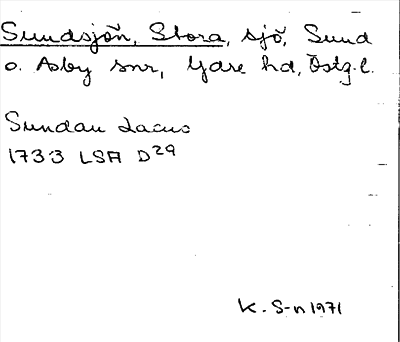 Sundsjön, Stora, sjö, Sund
o. Asby snr, Ydre hd, Östg.l.
Sundau Lacus
1733 LSA D29
K. S-n 1971